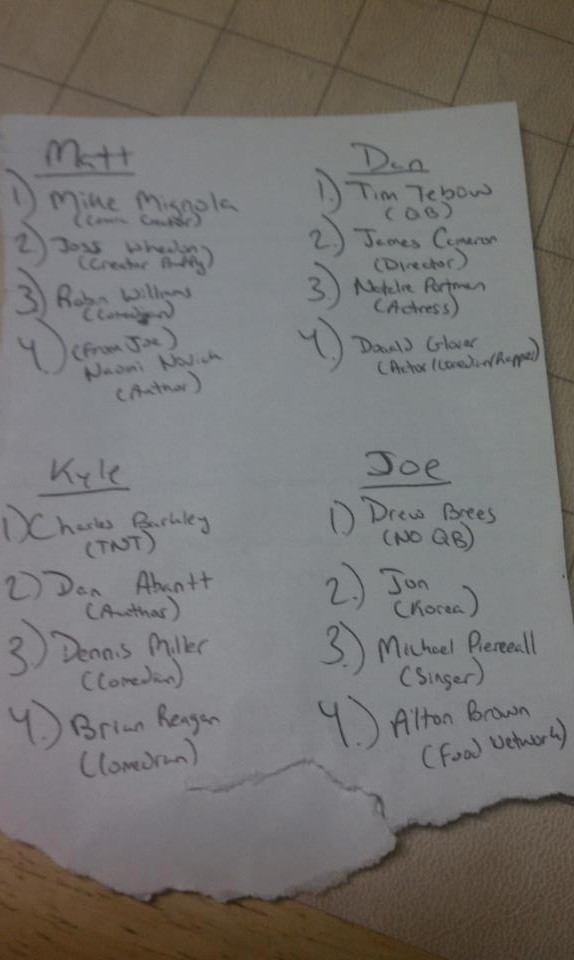 Matt
1) Mike Mignola
(Comic Creator)
2) Joss Whedon
(Creator Buffy)
3) Robin Williams
(Comedian)
4) (From Joe)
Naomi Novick
(Author)
Dan
1.) Tim Tebow
(QB)
2.) James Cameron
(Director)
3.) Natalie Portman
(Actress)
4.) Donald Glover
(Actor/Comedian/Rapper)
Kyle
1) Charles Barkley
(TNT)
2) Dan Abantt
(Author)
3) Dennis Miller
(Comedian)
4.) Brian Reagan
(Comedian)
Joe
1) Drew Brees
(NO QB)
2.) Jon
(Korea)
3.) Michael
(Singer)
4.) Alton Brown
(Food Network)